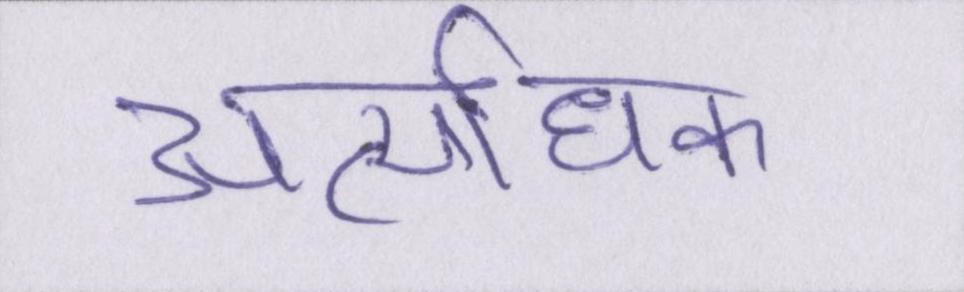 अत्यधिक